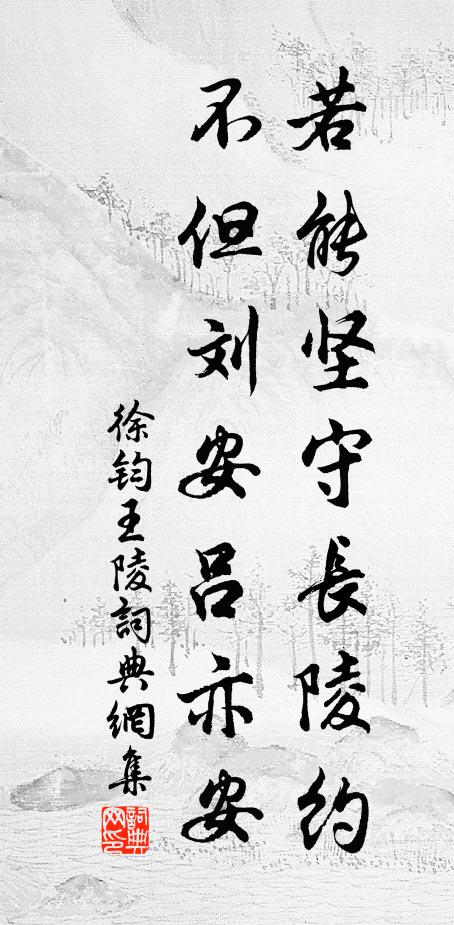 若能坚守長陵约
不但刘安吕亦安
徐钧王陵詞典網集
詞典網印